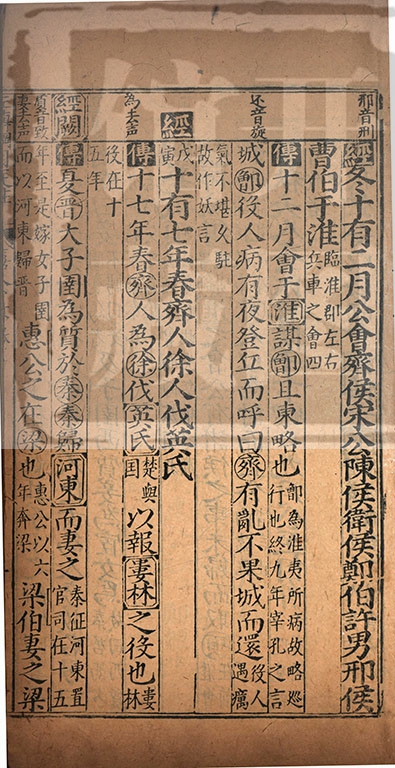 邢音刑
經冬十有二月公會齊侯宋公陳侯衛侯鄭伯許男邢侯
曹伯于淮臨淮郡左右兵車之會四
傳十二月會于淮謀鄫且東略也鄫為淮夷所病故略巡行也終九年宰孔之言
还音旋
城鄫役人病有夜登丘而呼曰齊有亂不果城而還役人遇癘
氣不堪久駐故作妖言
經
戊寅十有七年春齊人徐人伐英氏
為去声
傳十七年春齊人為徐伐英氏楚與國以報婁林之役也婁林
役在十五年
經闕
傳夏晉大子圉為質於秦秦歸河東而妻之秦征河東置官司在十五
質音致
妻去声
年至是嫁女子圉而以河東歸晉惠公之在梁也惠公以六年奔梁梁伯妻之梁